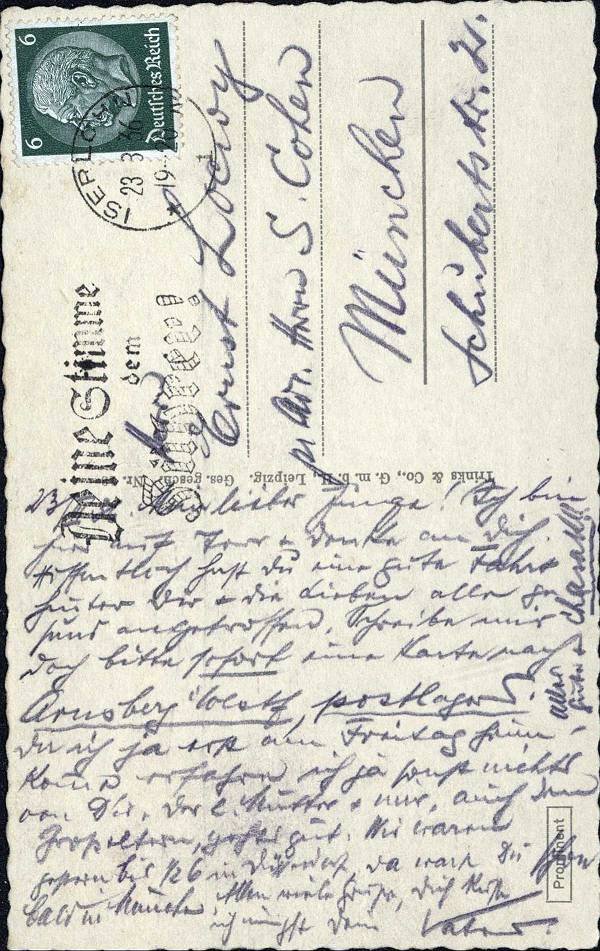 6
6
Deutsches Reich
ISERLOHN
23.3.36
19-20
Deine Stimme
dem
Führer!
Herrn
Ernst Loewy
pr Adr. Herrn S. Cohen
München
Schubertstr. 2
Trinks & Co., G. m. b. H., Leipzig. Ges. gesch. Nr.
23/3. Mein lieber Junge! Ich bin
hier auf Tour & denke an Dich.
Hoffentlich hast du eine gute Fahrt
hinter Dir & die Lieben alle ge-
sund angetroffen. Schreibe mir
doch bitte sofort eine Karte nach
Arnsberg Westf, postlagernd.
da ich ja erst am Freitag heim-
komme erfahre ich ja sonst nichts
von Dir. Der l. Mutter & mir, auch den
Großeltern, gehts gut. Wir waren
gestern bis 1/26 in Düsseldorf, da warst Du schon
bald in München. Allen viele Grüße, Dich küßt
innigst Dein Vater.
alles
gute &
chasak!!!
Prominent